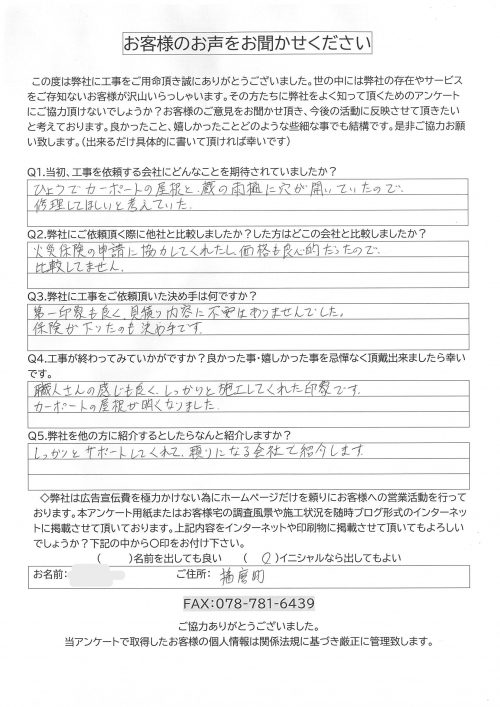 お客様のお声をお聞かせください
この度は弊社に工事をご用命頂き誠にありがとうございました。世の中には弊社の存在やサービス
をご存知ないお客様が沢山いらっしゃいます。その方たちに弊社をよく知って頂くためのアンケート
にご協力頂けないでしょうか？お客様のご意見をお聞かせ頂き、今後の活動に反映させて頂きたい
と考えております。良かったこと、嬉しかったことどのような些細な事でも結構です。是非ご協力お願
い致します。（出来るだけ具体的に書いて頂ければ幸いです）
Q1.当初、工事を依頼する会社にどんなことを期待されていましたか？
ひょうでカーポートの屋根と、蔵の雨樋に穴が開いていたので、
修理してほしいと考えていた.
Q2.弊社にご依頼頂く際に他社と比較しましたか？した方はどこの会社と比較しましたか？
火災保険の申請に協力してくれたし、価格も良心的だったので、
比較してません.
Q3.弊社に工事をご依頼頂いた決め手は何ですか？
第一印象も良く、見積り内容に不安はありませんでした。
保険が下ったのも決め手です.
Q4.工事が終わってみていかがですか？良かった事・嬉しかった事を忌憚なく頂戴出来ましたら幸い
です。
職人さんの感じも良く、しっかりと施工してくれた印象です.
カーポートの屋根が明くなりました.
Q5.弊社を他の方に紹介するとしたらなんと紹介しますか？
しっかりとサポートしてくれて、頼りになる会社で紹介します.
◇弊社は広告宣伝費を極力かけない為にホームページだけを頼りにお客様への営業活動を行って
おります。本アンケート用紙またはお客様宅の調査風景や施工状況を随時ブログ形式のインターネッ
トに掲載させて頂いております。上記内容をインターネットや印刷物に掲載させて頂いてもよろしい
でしょうか？下記の中から〇印をお付け下さい。
（ ）名前を出しても良い （ ○ ）イニシャルなら出してもよい
お名前： ご住所： 播磨町
FAX：078-781-6439
ご協力ありがとうございました。
当アンケートで取得したお客様の個人情報は関係法規に基づき厳正に管理致します。